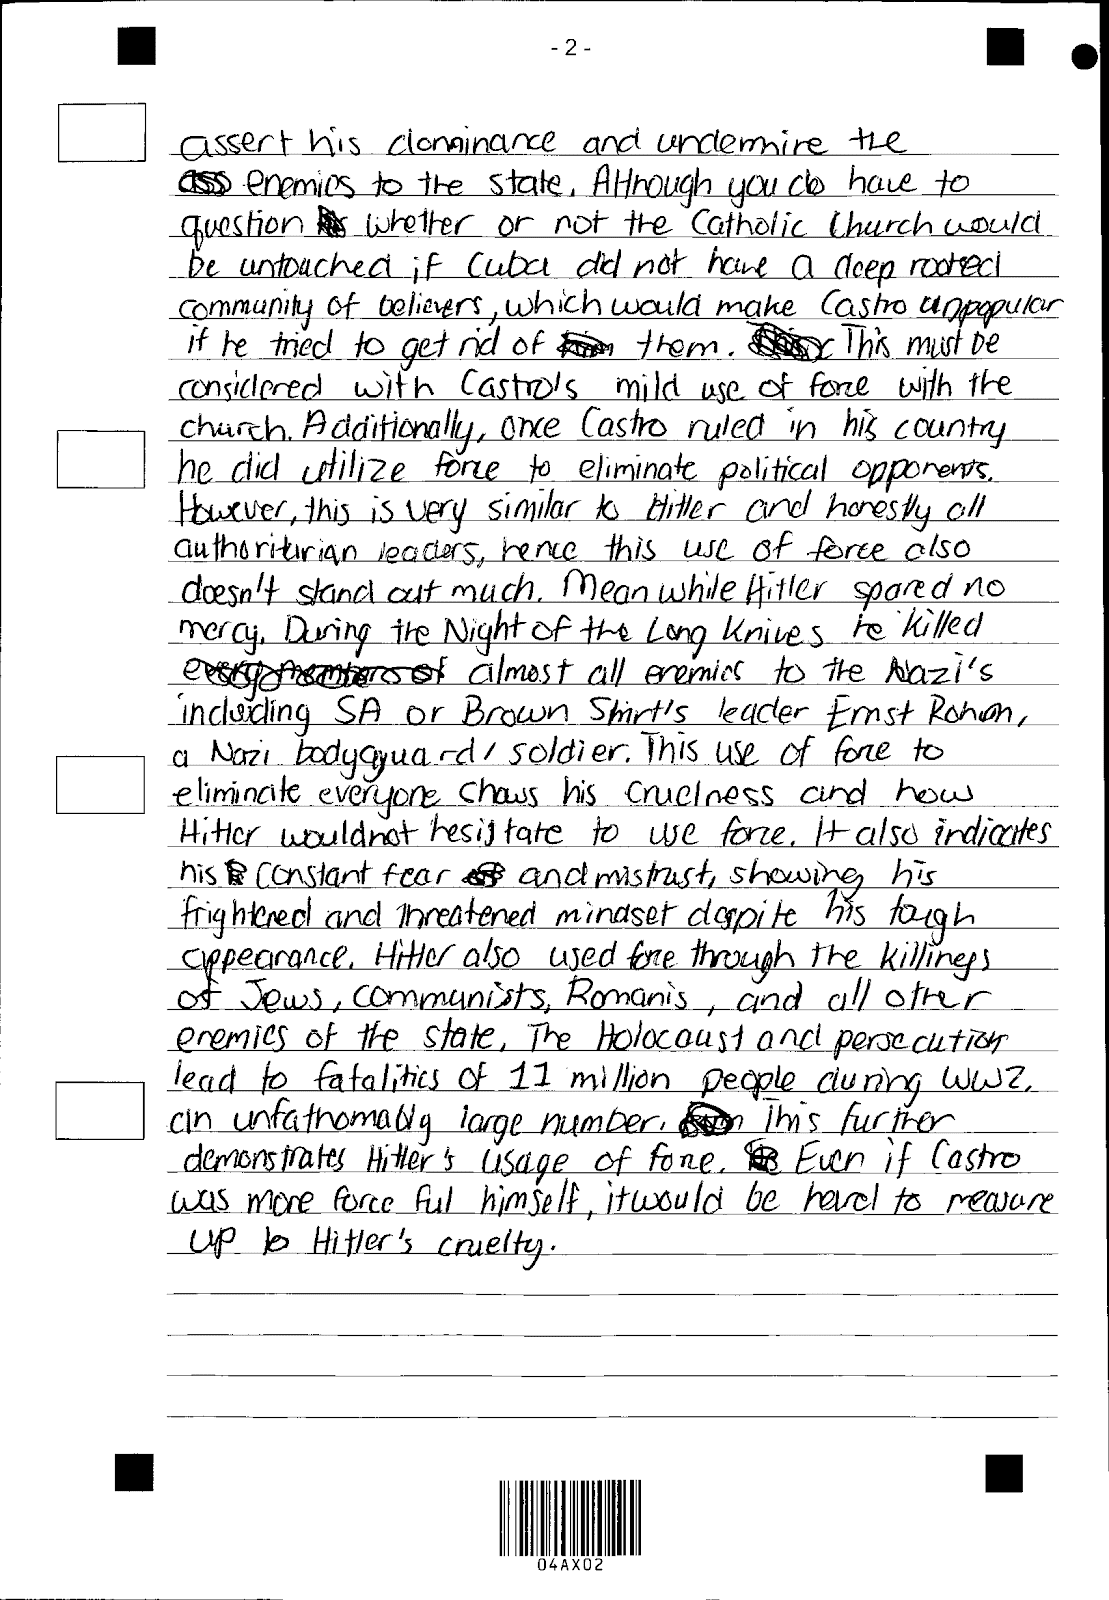 - 2 -
assert his dominance and undermine the
enemies to the state. Although you do have to
question whether or not the Catholic Church would
be untouched if Cuba did not have a deep rooted
community of believers, which would make Castro unpopular
if he tried to get rid of them. This must be
considered with Castro's mild use of force with the
church. Additionally, once Castro ruled in his country
he did utilize force to eliminate political opponents.
However, this is very similar to Hitler and honestly all
authoritarian leaders, hence this use of force also
doesn't stand out much. Meanwhile Hitler spared no
mercy. During the Night of the Long Knives he killed
almost all enemies to the Nazi's
including SA or Brown Shirt's leader Ernst Rohom,
a Nazi bodyguard/soldier. This use of force to
eliminate everyone shows his cruelness and how
Hitler wouldnot hesistate to use force. It also indicates
his constant fear and mistrust, showing his
frightened and threatened mindset despite his tough
appearance. Hitler also used force through the killings
of Jews, communists, Romanis, and all other
enemies of the state. The Holocaust and persecution
lead to fatalities of 11 million people during WW2.
an unfathomably large number. This further
demonstrates Hitler's usage of force. Even if Castro
was more force ful himself, it would be hard to measure
up to Hitler's cruelty.
04AX02